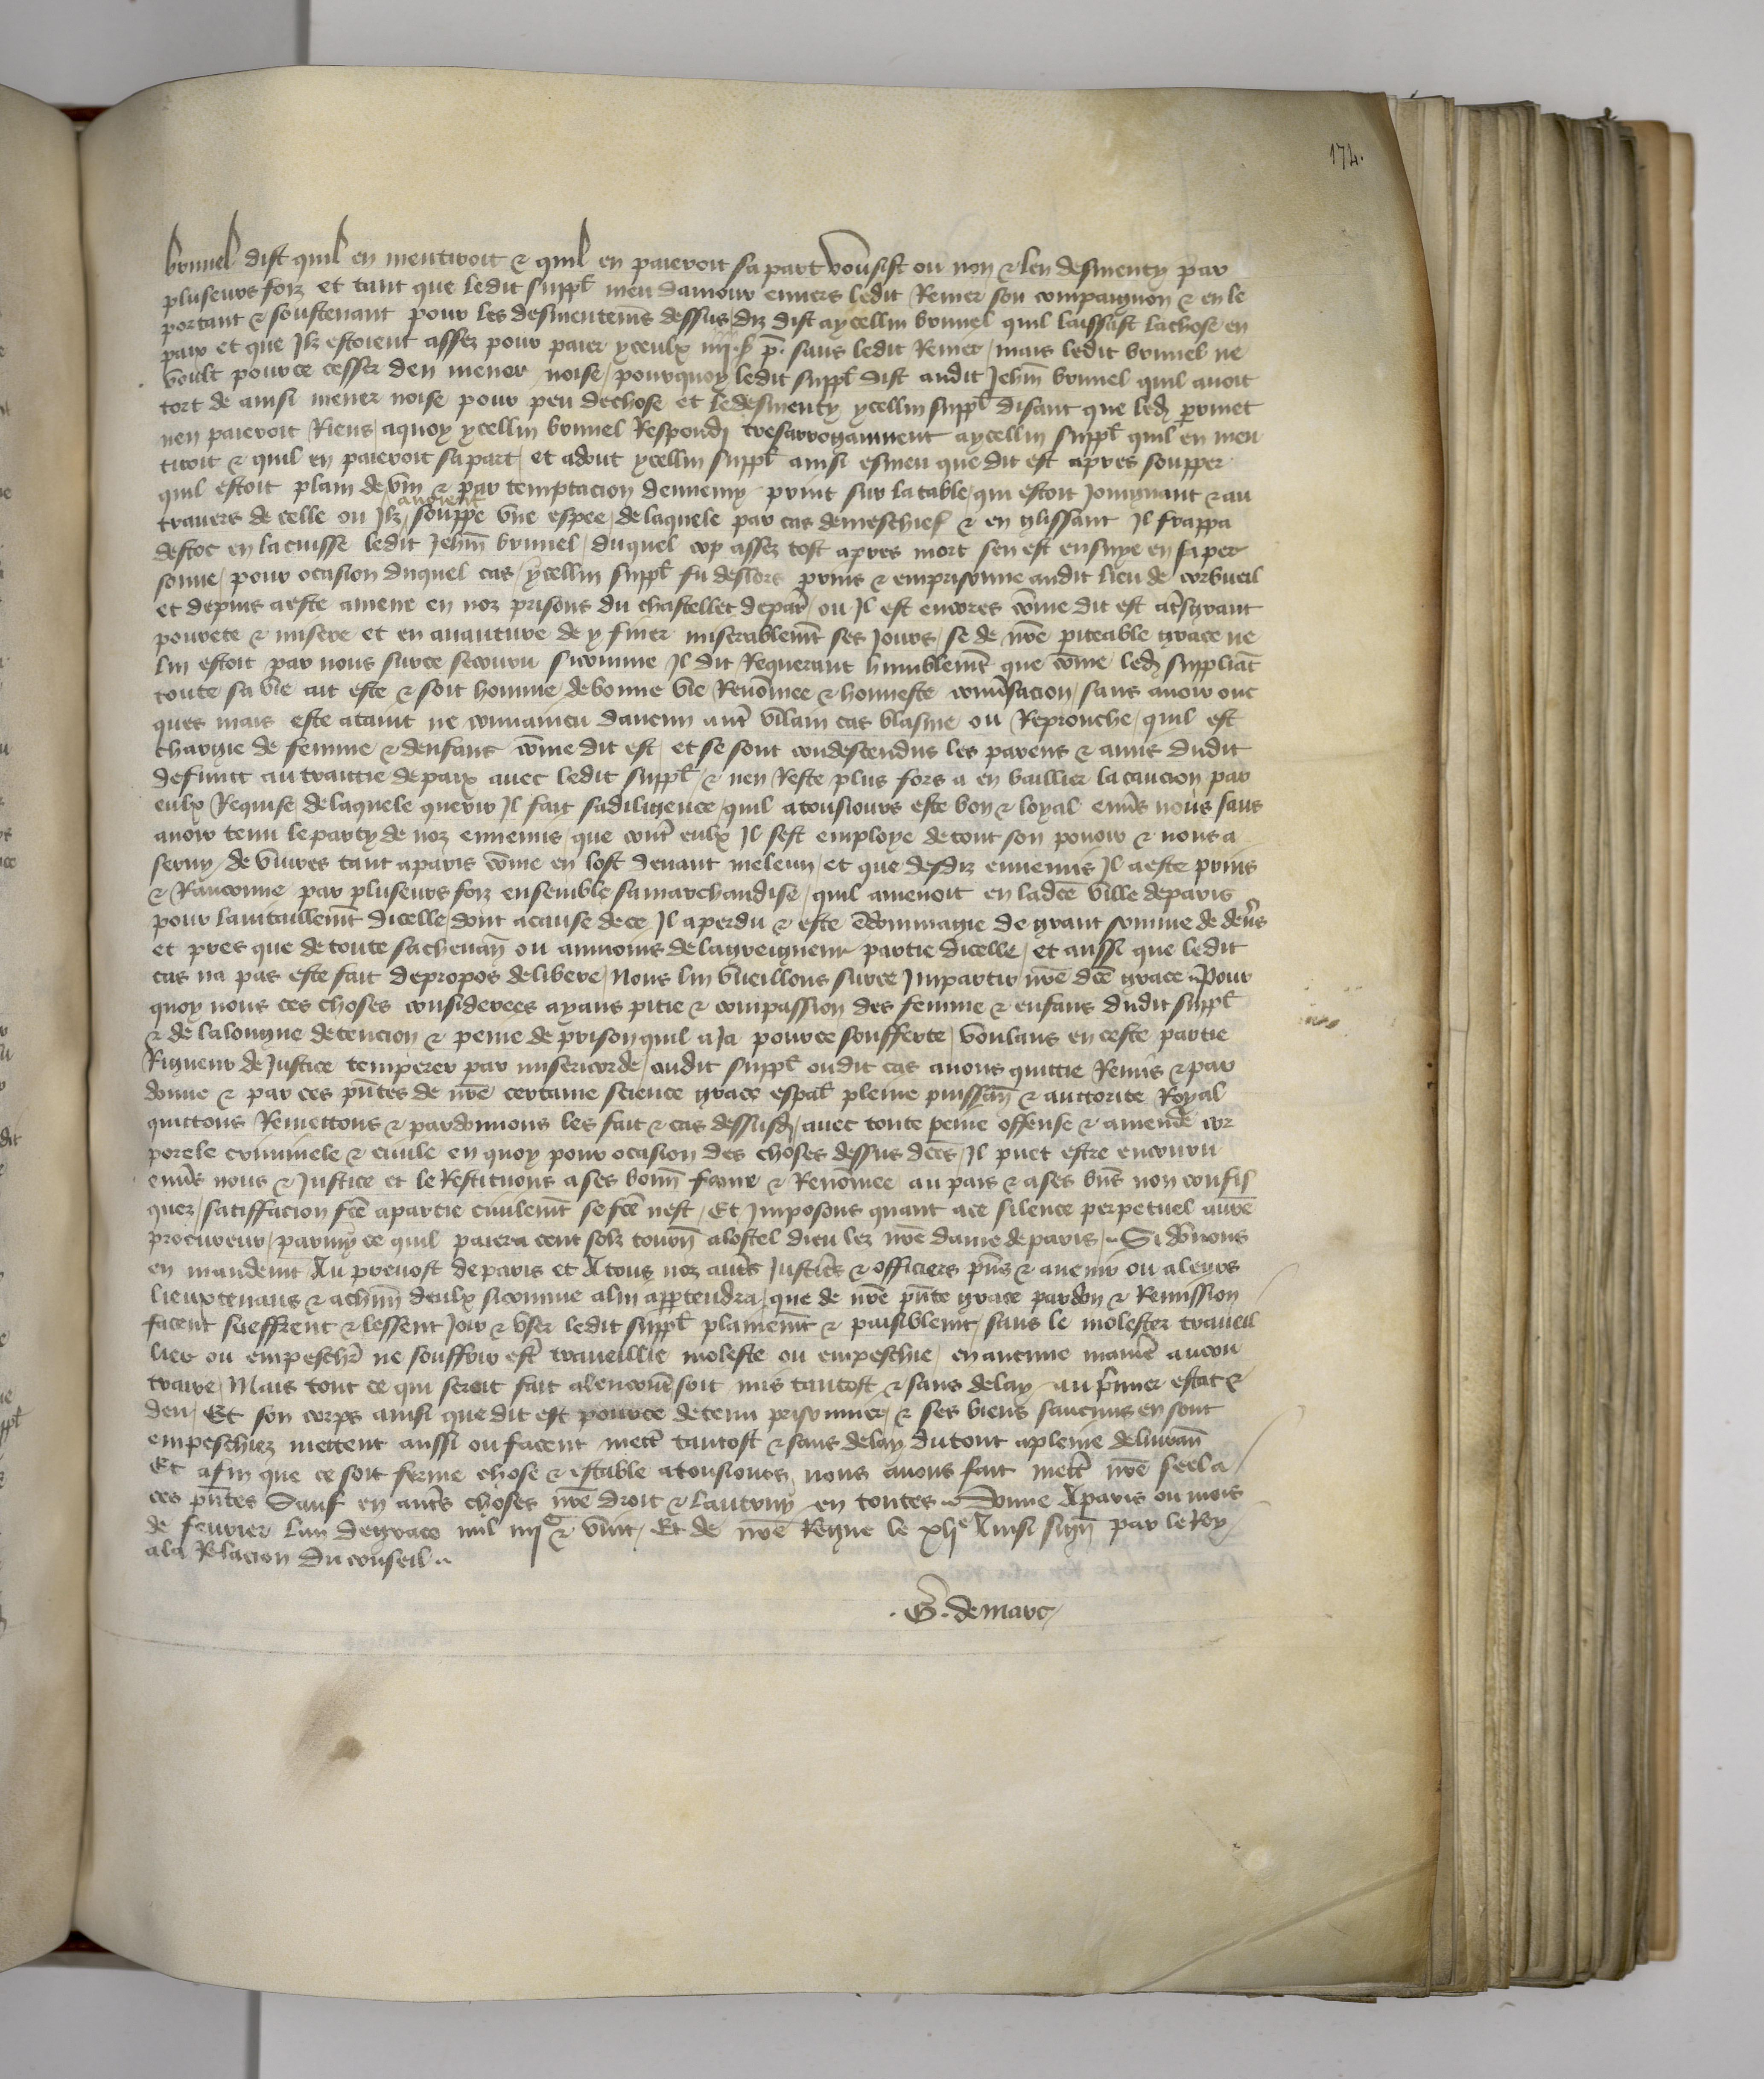 174.
brunel dist quil en mentiroit & quil en paieroit sa part voulsist ou non & len desmenty par
pluseurs foiz et tant que ledit suppl̃ meu damour enuers ledit Remer son compaignon & en le
portant & soustenant pour les desmentem̃s dessus diz dist a ycellui brunel quil laissast la chose en
paix et que Ilz estoient assez pour paier yceulx iiij s̃ p̃. sans ledit Remer / mais ledit brunel ne
voult pource cesser den mener noise / pourquoy ledit suppl̃ dist audit Jehñ brunel quil auoit
tort de ainsi mener noise pour peu de chose et le desmenty ycellui suppl̃ disant que led̃
nen paieroit Riens / a quoy ycellui brunel Respondi tresarrogamment a ycellui suppl̃ quil en men
tiroit & quil en paieroit sa part / et adont ycellui suppl̃ ainsi esmeu que dit est apres soupper
quil estoit plain de vin & par temptacion dennemy print sur la table / qui estoit Joingnant & au
trauers de celle ou Ilz auoient souppe vne espee / de laquele par cas de meschief & en glissant Il frappa
destoc en la cuisse ledit Jehñ brunel / duquel cop assez tost apres mort sen est ensuye en sa per
sonne / pour ocasion duquel cas / ycellui suppl̃ fu deslors prins & emprisonne audit lieu de corbueil
et depuis a este amene en noz prisons du chastellet de par̃ / ou Il est encores cõme dit est a tr̃sgrant
pourete & misere et en auanture de y finer miserablem̃t ses Jours / se de nr̃e piteable grace ne
lui estoit par nous surce secouru sicomme Il dit Requerant humblem̃t que cõme led̃ suppliãt
toute sa vie ait este & soit homme de bonne vie Renõmee & honneste conũsacion / sans auoir onc
ques mais este ataint ne conuaincu daucun autr̃ vilain cas blasme ou Reprouche / quil est
chargie de femme & denfans cõme dit est / et se sont condescendus les parens & amis dudit
defunct au traictie de paix auec ledit suppl̃ / & nen Reste plus fors a en baillier la caucion par
eulx Requise / de laquele querir Il fait sa diligence / quil a tousiours este bon & loyal enũs nous sans
auoir tenu le party de noz ennemis / que contr̃ eulx Il sest employe de tout son pouoir & nous a
seruy / de viures tant a paris cõme en lost deuant meleun / et que desdiz ennemis Il a este prins
& Ranconne par pluseurs foiz ensemble sa marchandise / quil amenoit en ladc̃e ville de paris
pour lauitaillem̃t dicelle / dont a cause de ce Il a perdu & este ẽdommagie de grant somme de deñs
et pres que de toute sa cheuañ ou aumoins de la greigneur partie dicelle / et aussi que ledit
cas na pas este fait de propos delibere / Nous lui vueillons surce Impartir nr̃e dc̃e grace Pour
quoy nous ces choses considerees ayans pitie & compassion des femme & enfans dudit suppl̃
& de la longue detencion & peine de prison quil a Ja pource soufferte / voulans en ceste partie
Rigueur de Justice temperer par misericorde / audit suppl̃ oudit cas auons quictie Remis & par
donne & par ces pñtes de nr̃e certaine science grace espal̃ pleine puissañ & auctorite Royal
quictons Remettons & pardonnons les fait & cas dessusd̃ / auec toute peine offense & amende cor
porele criminele & ciuile en quoy pour ocasion des choses dessus dc̃es / Il puet estre encouru
enũs nous & Justice et le Restituons a ses bonñ fame & Renõmee au pais & a ses bñs non confis
quez / satiffacion fc̃e a partie ciuilem̃t se fc̃e nest / Et Imposons quant a ce silence perpetuel a nr̃e
procureur / parmy ce quil paiera cent solz tourñ a lostel dieu lez nr̃e dame de paris / Si dõnons
en mandemt Au preuost de paris et A tous noz autr̃s Justic̃rs & officiers pñs & auenir ou a leurs
lieuxtenans & a chñn deulx sicomme a lui appartendra / que de nr̃e pñte grace pardon & Remission
facent sueffrent & lessent Joir & vser ledit suppl̃ plainem̃t & paisiblem̃t / sans le molester traueil
lier ou empeschr̃ ne souffrir estr̃ traueillie moleste ou empeschie / en aucune manie͂ au con
traire / Mais tout ce qui seroit fait alencontr̃ soit mis tantost & sans delay au pr̃mier estat &
deu / Et son corps ainsi que dit est pource detenu prisonnier / & ses biens saucuns en sont
empeschiez mettent aussi ou facent mectr̃ tantost & sans delay du tout a pleine deliurañ
Et afin que ce soit ferme chose & estable a tousiours nous auons fait mectr̃ nr̃e seel a
ces pñtes Sauf en autr̃s choses nr̃e droit & lautruy en toutes Donne A paris ou mois
de feurier lan de grace mil iiijᶜ & vint / Et de nr̃e Regne le xljᵉ Ainsi sigñ par le Roy
a la Relacion du conseil
. G. de marc